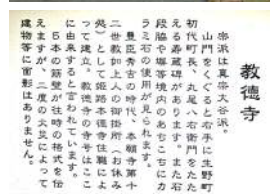 教徳寺
宗派は真宗大谷派。
山門をくぐると右手に生野町
初代町長、丸尾八右衛門をたた
える寿蔵碑があります。また石
段脇や塀等境内のあちこちにカ
ラミ石の使用が見られます。
豊臣秀吉の時代、本願寺第十
二世教如上人の御掛所(お休み
処)として姫路本徳寺住職によ
って建立。教徳寺の寺号はここ
に由来すると言われています。
5本の筋壁が往時の格式を伝
えますが、二度の火災によって
建物等に面影はありません。